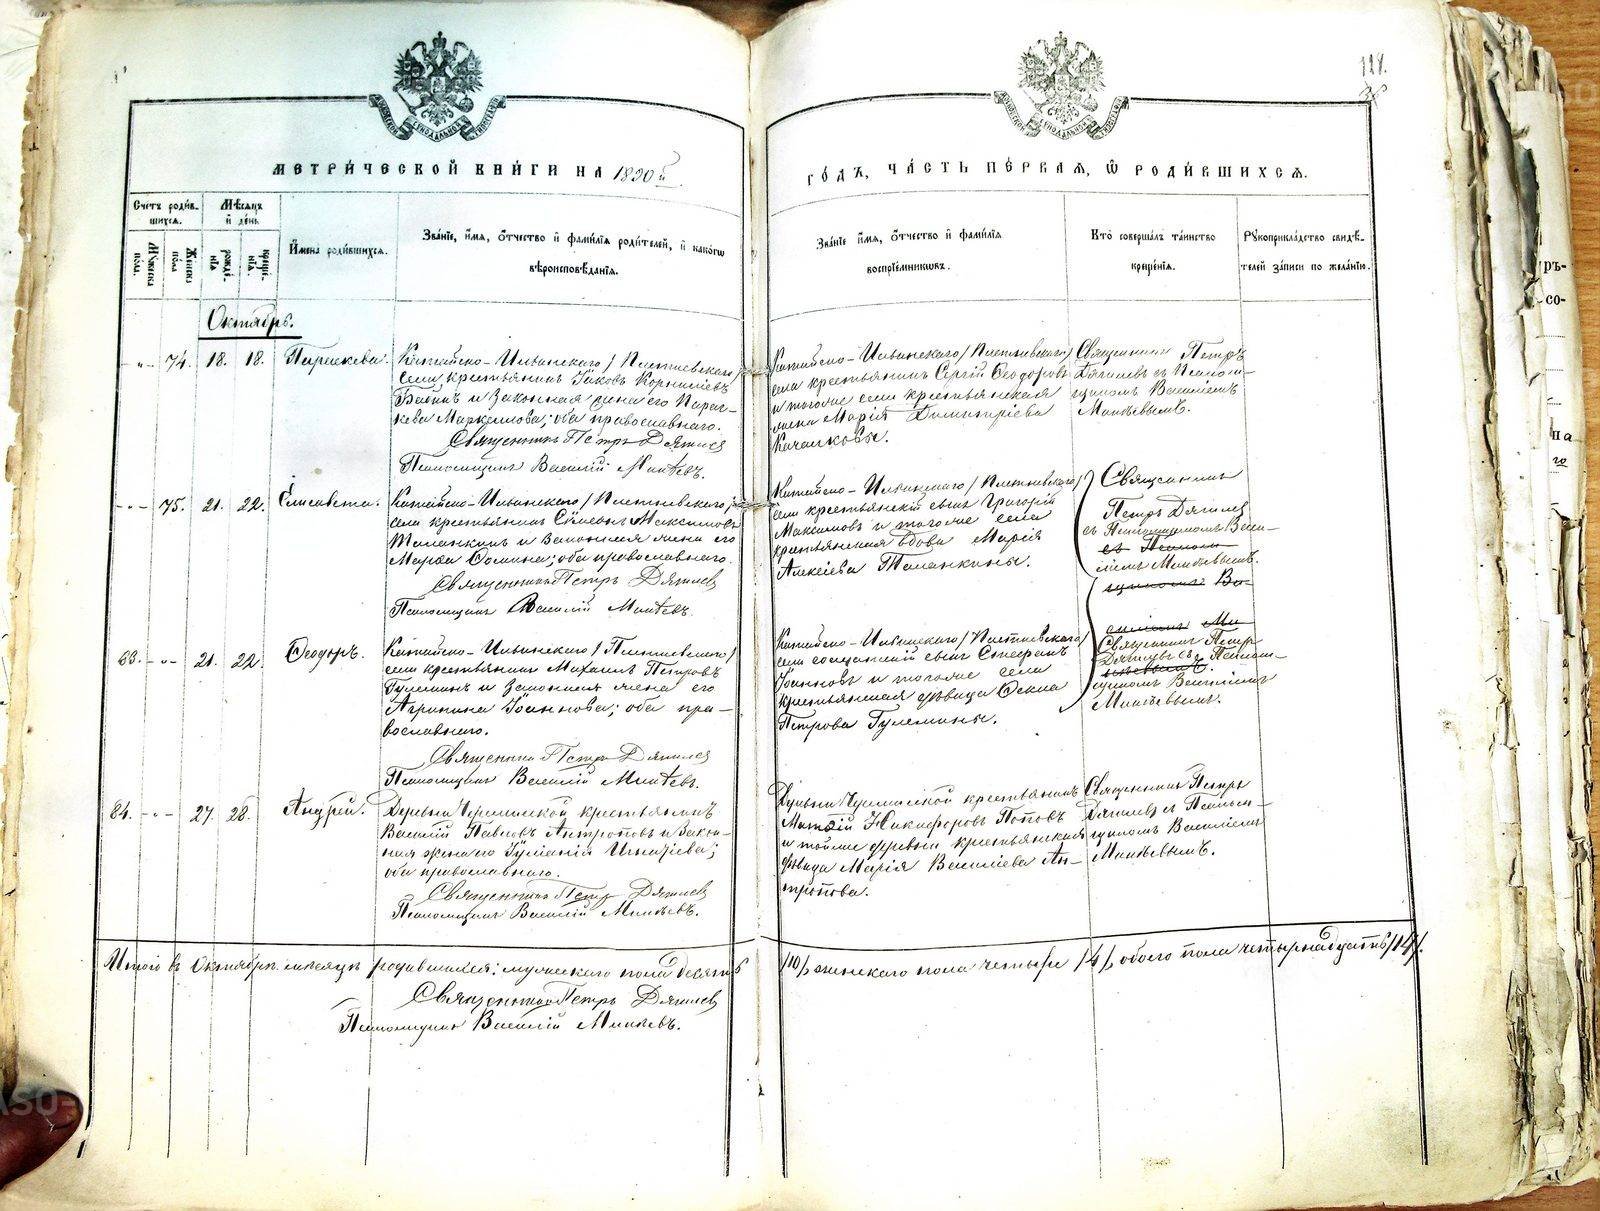 118.
МЕТРИ́ЧЕСКОЙ КНИ́ГИ НА 1890й
ГО́ДЪ, ЧА́СТЬ ПЕ́РВАЯ, Ѡ РОДИ́ВШИХСЯ.
Сче́тъ роди́в-
шихся.
Му́жеска по́ла.
Же́нска по́ла
Мѣ́сяцъ
и҆ де́нь
рожде́-
нїя
креще́-
нїя.
И҆мена̀ роди́вшихся.
Зва́нїе, и҆́мя, ѻ҆́тчество и҆ фами́лїя роди́телей, и҆ како́гѡ
вѣроисповѣ́данїя.
Зва́нїе и҆́мя, ѻ҆́тчество и҆ фами́лїя
воспрїе́мниковъ.
Кто̀ соверша́лъ та́инство
креще́нїя.
Рукоприкла́дство свидѣ́-
телей за́писи по жела́нїю.
Октябрь.
-"- 74. 18. 18. Параскева.
Китайско-Ильинскаго /Плетневскаго/
села крестьянинъ Іаковъ Корнилiевъ
и законная жена его Парас-
кева Маркелова; оба православнаго.
Священникъ Петръ Дягилев
Псаломщикъ Василій Михѣевъ.
Китайско-Ильинскаго /Плетневскаго/
села крестьянинъ Сергій Ѳеодоровъ
и тогоже села крестьянская
жена Марія Димитріева
Качалковы.
Священникъ Петръ
Дягилевъ съ Псалом-
щикомъ Василіемъ
Михѣевымъ.
-"- 75. 21. 22. Елисавета.
Китайско-Ильинскаго /Плетневскаго/
села крестьянинъ Сѷмеонъ Максимовъ
Таланкинъ и законная жена его
Марѳа Ѳомина; оба православнаго.
Священникъ Петръ Дягилев
Псаломщикъ Василій Михѣевъ.
Китайско-Ильинскаго /Плетневскаго/
села крестьянскій сынъ Григорій
Максимовъ и тогоже села
крестьянская вдова Марія
Алексіева Таланкины.
Священникъ
Петръ Дягилев
съ Псаломщикомъ Васи-
съ Псалом-
ліемъ Михѣевымъ.
щикомъ Ва-
83. -"- 21. 22. Ѳеодоръ.
Китайско-Ильинскаго /Плетневскаго/
села крестьянинъ Михаилъ Петровъ
и законная жена его
Агрипина Іоаннова; оба пра-
вославнаго.
Священникъ Петръ Дягилев
Псаломщикъ Василій Михѣевъ.
Китайско-Ильинскаго /Плетневскаго/
села сынъ Стефанъ
Іоанновъ и тогоже села
крестьянская дѣвица
Петрова
силіемъ Ми-
Священникъ Петръ
Дягилевъ съ Псалом-
хѣевымъ.
щикомъ Василіемъ
Михѣевымъ.
84. -"- 27. 28. Андрей.
Деревни крестьянинъ
Василій Павловъ Антроповъ и закон-
ная жена его Іуліанія Игнатіева;
оба православнаго.
Священникъ Петръ Дягилев
Псаломщикъ Василій Михѣевъ.
Деревни крестьянинъ
Матѳій Никифоровъ Поповъ
и тойже деревни крестьянская
дѣвица Марія Василіева Ан-
тропова.
Священникъ Петръ
Дягилевъ съ Псалом-
щикомъ Василіемъ
Михѣевымъ.
Итого въ Октябрѣ мѣсяцѣ родившихся: мужескаго пола десять /10/, женскаго пола четыре /4/, обоего пола четырнадцать /14/.
Священникъ Петръ Дягилев
Псаломщикъ Василій Михѣевъ.